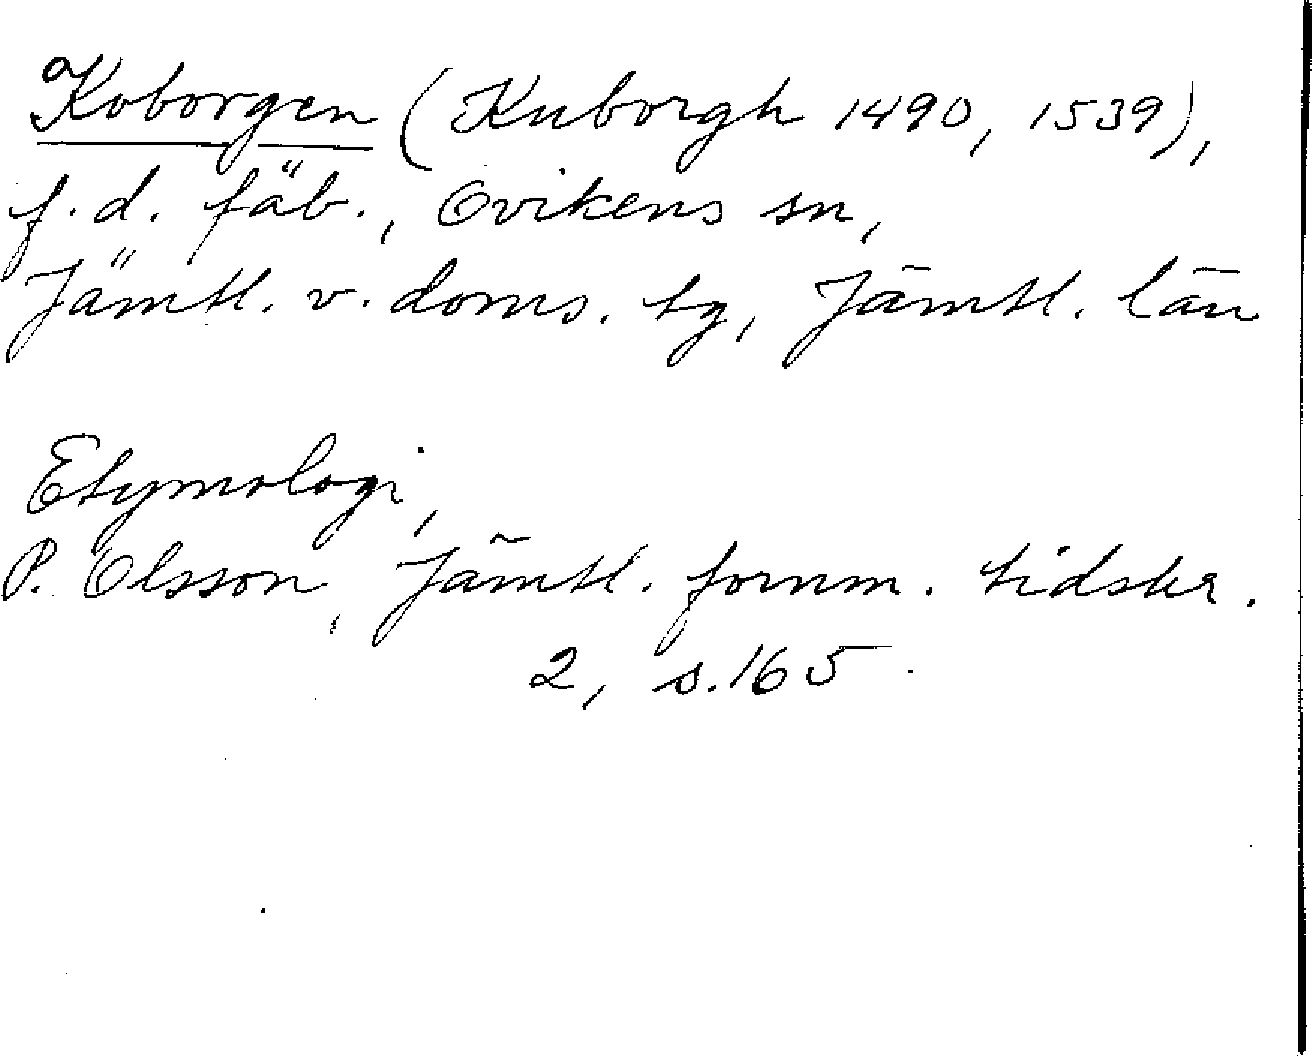 Koborgen (Kuborgh 1490, 1539),
f.d. fäb., Ovikens sn,
Jämtl. v. doms. tg, Jämtl. län
Etymologi,
P. Olsson, Jämtl. fornm. tidskr.
2, s. 165.